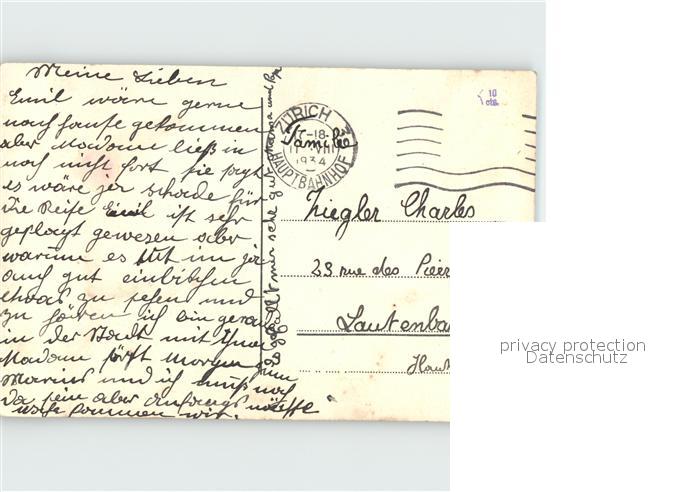 Meine Lieben
Emil wäre gerne
nach hause gekommen
aber Madame ließ in
noch nicht fort sie sagt
es wäre ja schade für
die Reise Emil ist sehr
geplagt gewesen aber
warum es tut im ja
auch gut einbischen
etwas zu sehen und
zu hören ich bin gerade
in der Stadt mit
Madame morgen
Marius und ich muß noch
da sein aber anfangs
Woche kommen wir.
es gefällt mir sehr gut Mama und
ZÜRICH
17-18
VIII
1934
HAUPTBAHNHOF
Familie
Ziegler Charles
23 rue des
Lautenba
Haut
10
cts.
privacy protection
Datenschutz